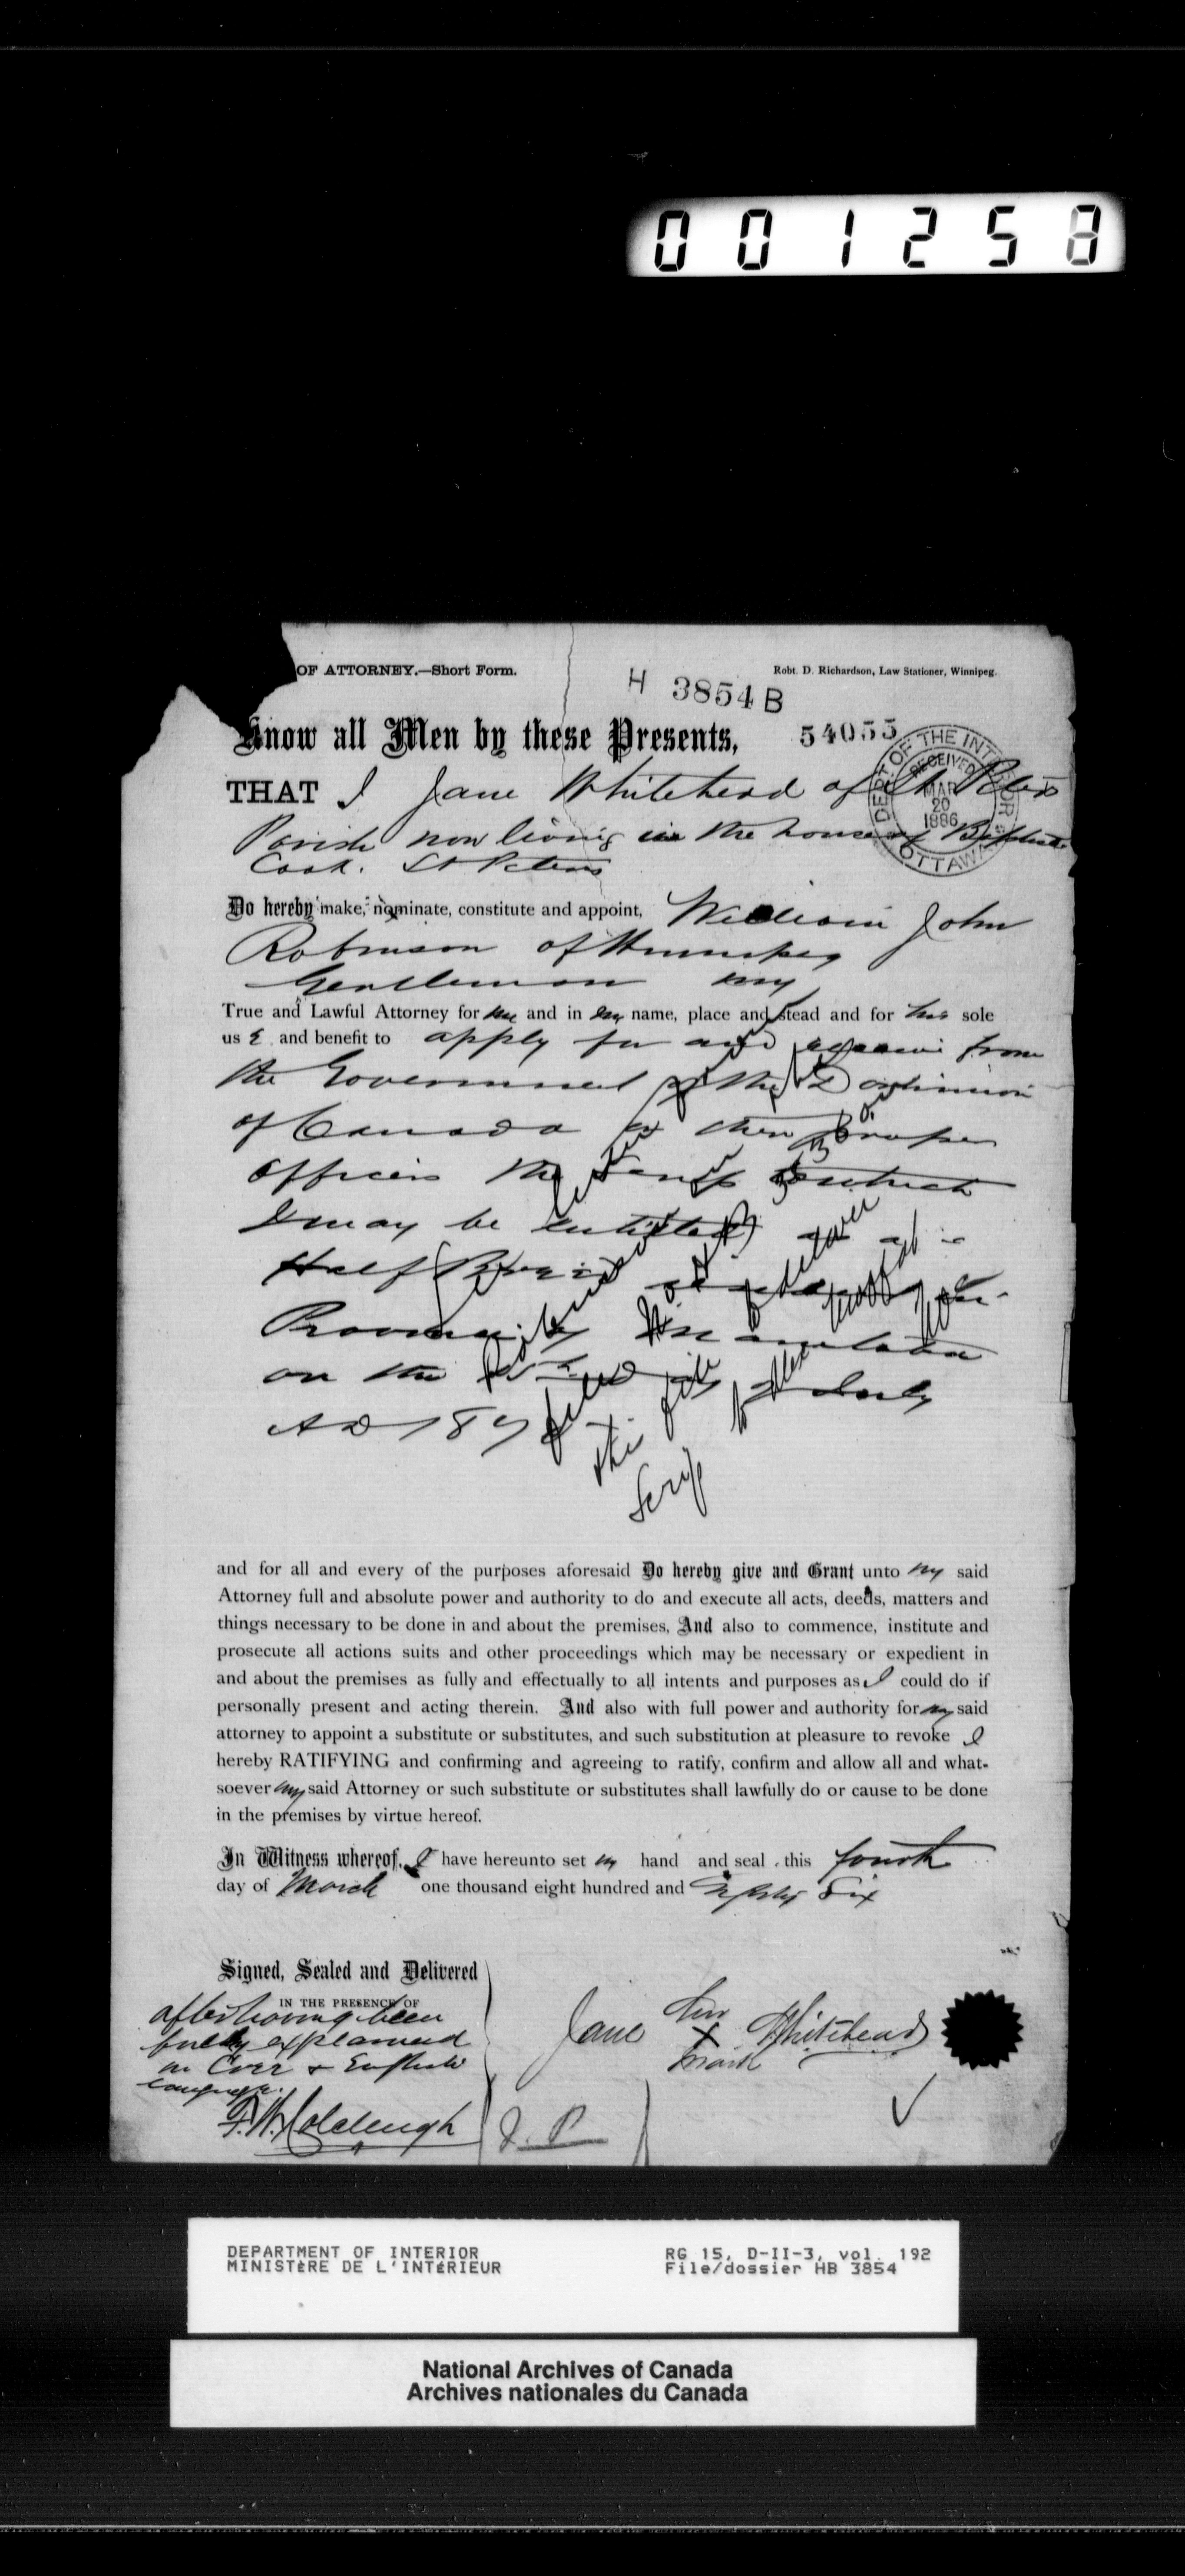 001258
OF ATTORNEY.—Short Form.
Robt. D. Richardson, Law Stationer, Winnipeg.
H 3854 B
Know all Men by these Presents,
54055
DEPT OF THE INTERIOR
RECEIVED
MAR
20
1886
OTTAWA
THAT I Jane Whitehead of St. Peters
Parish now living in the house of Baptiste
Cook. St Peters
Do hereby make, nominate, constitute and appoint, William John
Robinson of Winnipeg
Gentleman my
True and Lawful Attorney for me and in my name, place and stead and for sole
us e and benefit to apply for and receive from
the Government of the Dominion
of Canada or their proper
Officers the Scrip to which
I may be entitled as a
Half Breed in the
Province of Manitoba
on the 15th day of July
AD 187
Robinson
filed
this file
Scrip
and for all and every of the purposes aforesaid Do hereby give and Grant unto my said
Attorney full and absolute power and authority to do and execute all acts, deeds, matters and
things necessary to be done in and about the premises, And also to commence, institute and
prosecute all actions suits and other proceedings which may be necessary or expedient in
and about the premises as fully and effectually to all intents and purposes as I could do if
personally present and acting therein. And also with full power and authority for my said
attorney to appoint a substitute or substitutes, and such substitution at pleasure to revoke I
hereby RATIFYING and confirming and agreeing to ratify, confirm and allow all and what-
soever my said Attorney or such substitute or substitutes shall lawfully do or cause to be done
in the premises by virtue hereof.
In Witness whereof, I have hereunto set my hand and seal this fourth
day of March one thousand eight hundred and Eighty Six
Signed, Sealed and Delivered
IN THE PRESENCE OF
after having been
fully explained
in Cree & English
language.
F. W. Colcleugh
J. P.
Jane her X mark Whitehead
DEPARTMENT OF INTERIOR
MINISTÈRE DE L'INTÉRIEUR
RG 15, D-II-3, vol. 192
File/dossier HB 3854
National Archives of Canada
Archives nationales du Canada